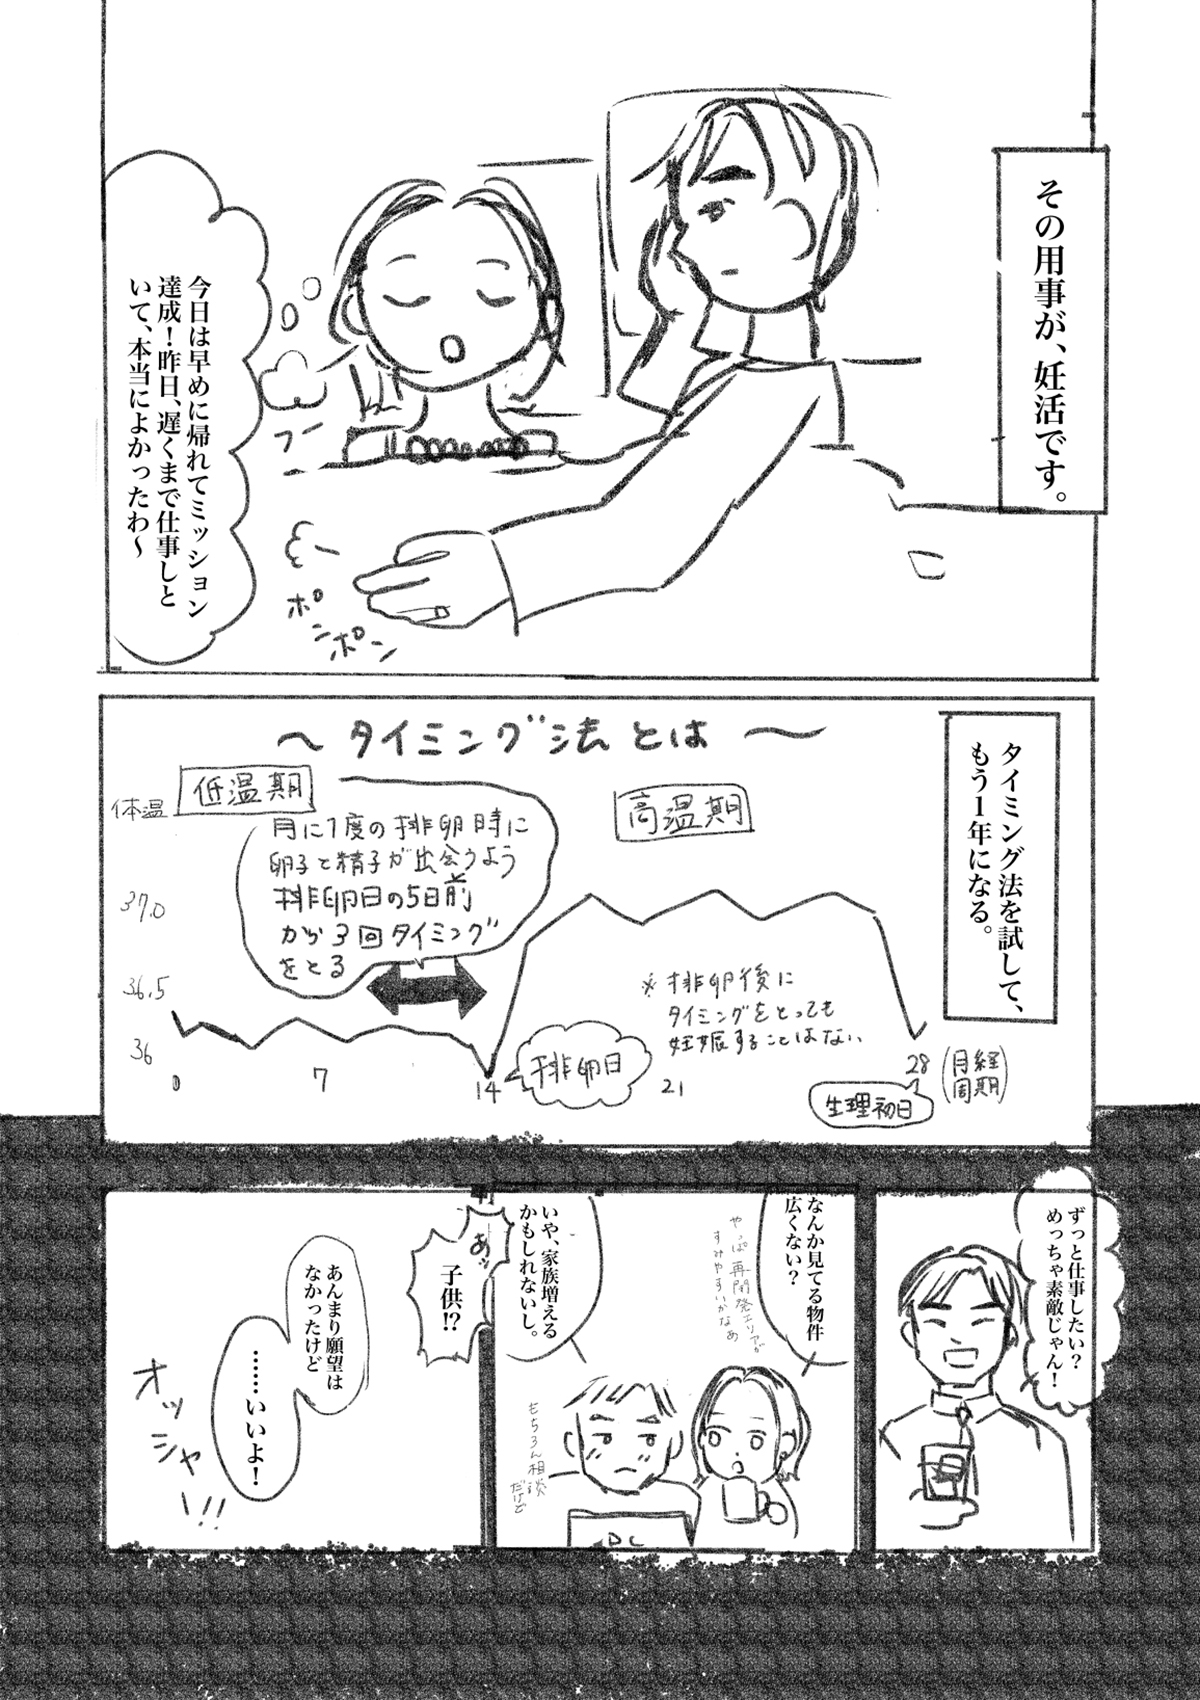 その用事が、妊活です。
今日は早めに帰れてミッション
達成！昨日、遅くまで仕事しと
いて、本当によかったわ〜
フー
ポンポン
タイミング法を試して、
もう1年になる。
〜タイミング法とは〜
体温
低温期
高温期
月に1度の排卵時に
卵子と精子が出会うよう
排卵日の5日前
から3回タイミング
をとる
37.0
36.5
36
※排卵後に
タイミングをとっても
妊娠することはない
排卵日
0
7
14
21
28
(月経周期)
生理初日
ずっと仕事したい？
めっちゃ素敵じゃん！
なんか見てる物件
広くない？
やっぱ再開発エリアが
すみやすいかなぁ
いや、家族増える
かもしれないし。
もちろん相談
だけど
PC
あッ
子供!?
あんまり願望は
なかったけど
……いいよ！
オッシャ!!